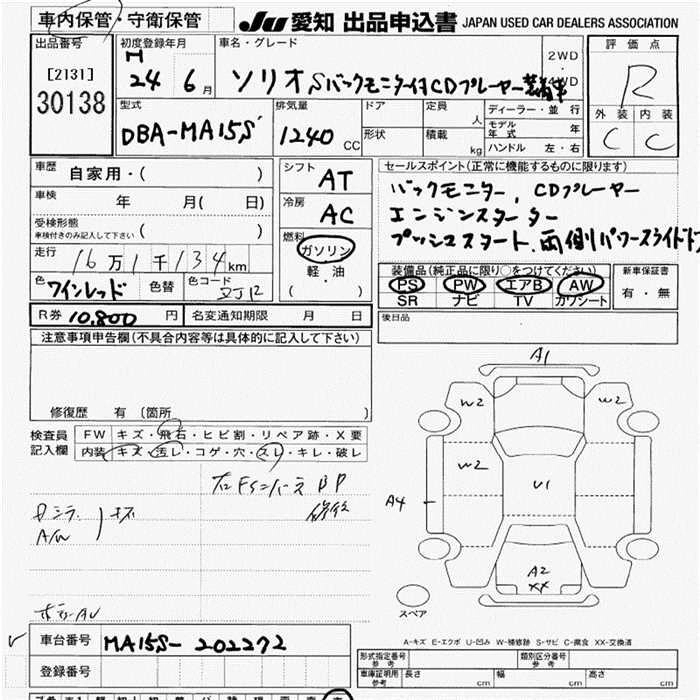 車内保管・守衛保管
JU 愛知 出品申込書 JAPAN USED CAR DEALERS ASSOCIATION
出品番号
[2131]
30138
初度登録年月
H
24 6月
車名・グレード
ソリオ Sバックモニター付CDプレーヤー装着車
2WD
4WD
評価点
R
外装 内装
C C
型式
DBA-MA15S
排気量
1240 CC
ドア
形状
定員 人
積載 kg
ディーラー・並行
モデル年式 年
ハンドル 左・右
車歴
自家用・( )
車検
年 月( 日)
受検形態
車検付きのみ記入して下さい
( )
走行
16万1千134km
色
ワインレッド
色替
色コード
ZJ12
シフト
AT
冷房
AC
燃料
ガソリン
軽・油
( )
セールスポイント(正常に機能するものに限ります)
バックモニター、CDプレーヤー
エンジンスターター
プッシュスタート、両側パワースライドドア
装備品(純正品に限り○をつけてください)
PS PW エアB AW
SR ナビ TV ガワシート
新車保証書
有・無
R券 10,800円
名変通知期限 月 日
後日品
注意事項申告欄(不具合内容等は具体的に記入して下さい)
修復歴 有(箇所 )
検査員
記入欄
FW キズ・飛石・ヒビ割・リペア跡・X要
内装 キズ・汚レ・コゲ・穴・スレ・キレ・破レ
A1
W2 W2
W2
U1
A4
A2
XX
スペア
A-キズ E-エクボ U-凹み W-補修跡 S-サビ C-腐食 XX-交換済
車台番号
MA15S-202272
登録番号
形式指定番号
参考
類別区分番号
参考
車庫証明用
参考
長さ cm
幅 cm
高さ cm